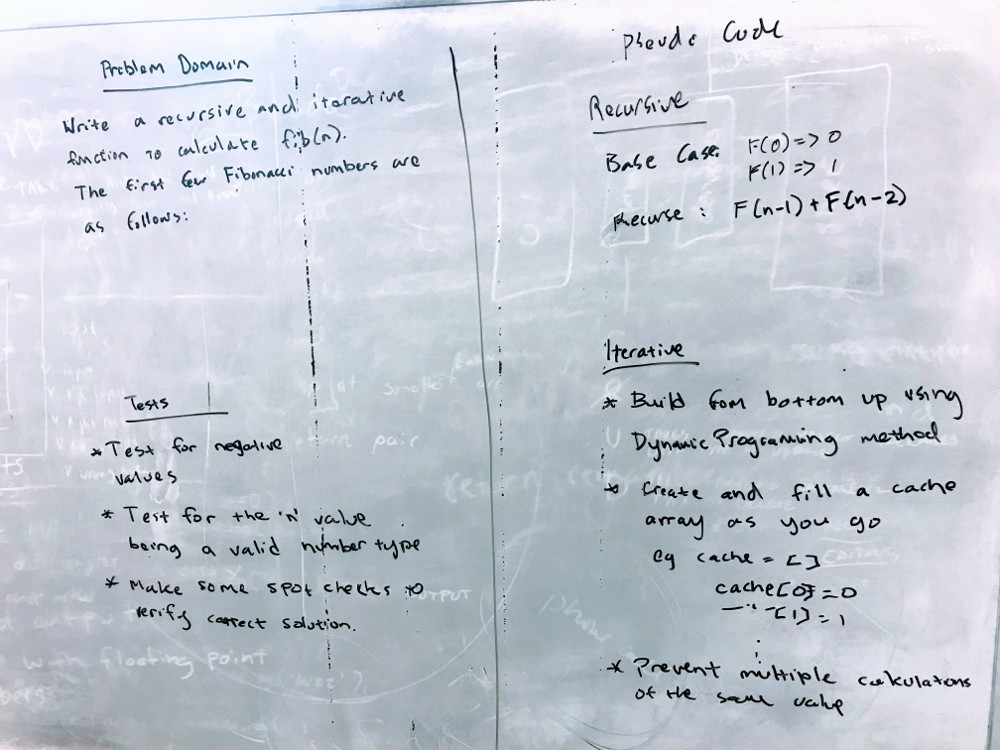 Problem Domain
Write a recursive and iterative
function to calculate fib(n).
The first few Fibonacci numbers are
as follows:
Tests
* Test for negative
values
* Test for the 'n' value
being a valid number type
* Make some spot checks to
verify correct solution.
Pseudo Code
Recursive
Base Case: F(0) => 0
F(1) => 1
Recurse : F(n-1) + F(n-2)
Iterative
* Build from bottom up using
Dynamic Programing method
* Create and fill a cache
array as you go
eg cache = []
cache[0] = 0
—"—[1] = 1
* Prevent multiple calculations
of the same value
at smallest
pair
OUTPUT
with floating point